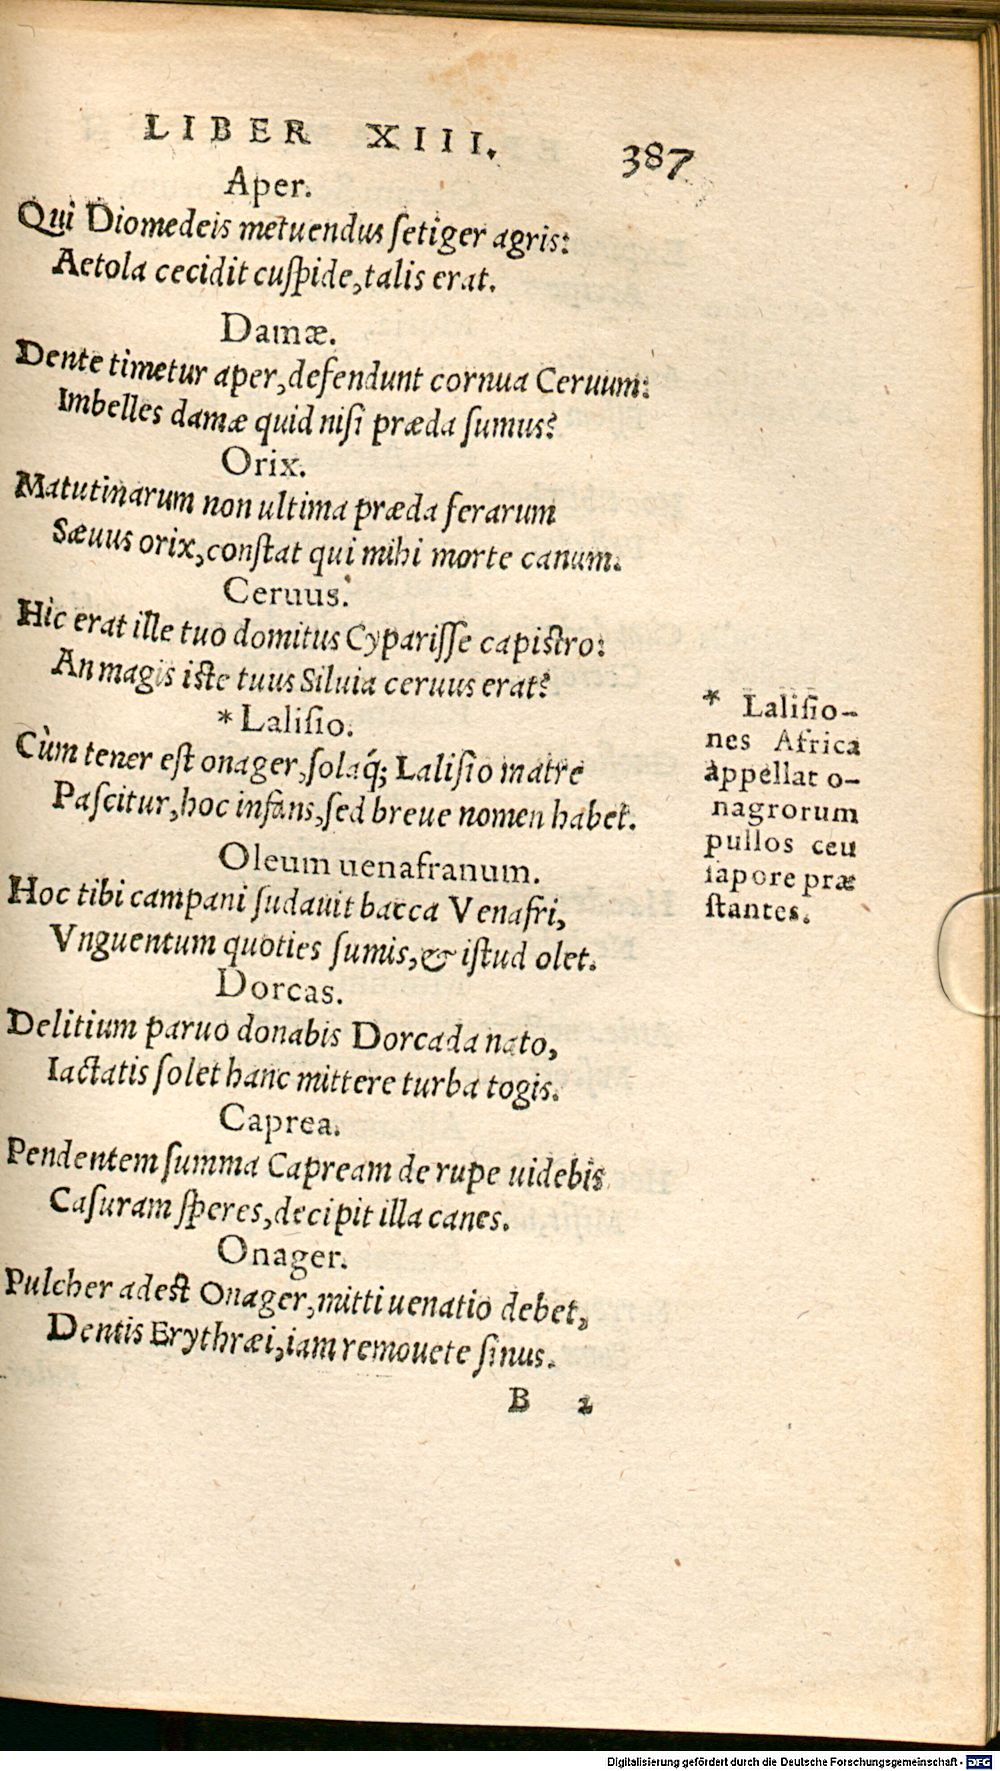 LIBER XIII. 387
Aper.
Qui Diomedeis metuendus ſetiger agris:
Aetola cecidit cuſpide, talis erat.
Damæ.
Dente timetur aper, defendunt cornua Ceruum:
Imbelles damæ quid niſi præda ſumus?
Orix.
Matutinarum non ultima præda ferarum
Sæuus orix, conſtat qui mihi morte canum.
Ceruus.
Hic erat ille tuo domitus Cypariſſe capiſtro:
An magis iſte tuus Siluia ceruus erat?
*Laliſio.
Cùm tener eſt onager, ſolaq́; Laliſio matre
Paſcitur, hoc infans, ſed breue nomen habet.
Oleum uenafranum.
Hoc tibi campani ſudauit bacca Venafri,
Vnguentum quoties ſumis, & iſtud olet.
Dorcas.
Delitium paruo donabis Dorcada nato,
Iactatis ſolet hanc mittere turba togis.
Caprea.
Pendentem ſumma Capream de rupe uidebis
Caſuram ſperes, decipit illa canes.
Onager.
Pulcher adeſt Onager, mitti uenatio debet,
Dentis Erythræi, iam remouete ſinus.
B 2
* Laliſio-
nes Africa
appellat o-
nagrorum
pullos ceu
ſapore præ
ſtantes.
Digitalisierung gefördert durch die Deutsche Forschungsgemeinschaft - DFG